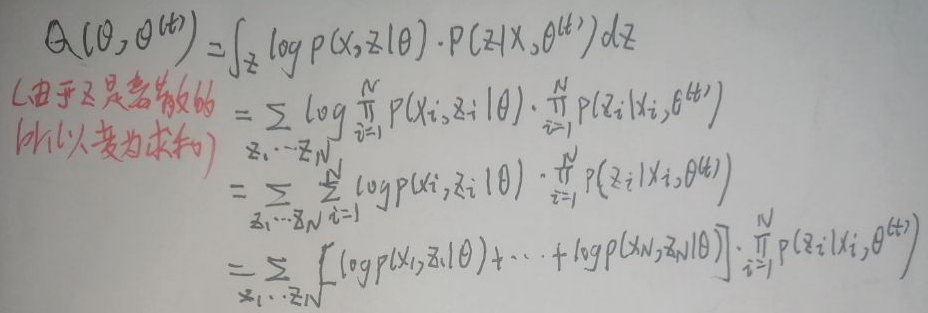 Q(θ, θ^(t)) = ∫_Z log P(X, Z|θ) · P(Z|X, θ^(t)) dZ
(由于Z是离散的
所以变为求和)
= ∑_{z₁…z_N} log ∏_{i=1}^N P(x_i, z_i|θ) · ∏_{i=1}^N P(z_i|x_i, θ^(t))
= ∑_{z₁…z_N} ∑_{i=1}^N log p(x_i, z_i|θ) · ∏_{i=1}^N P(z_i|x_i, θ^(t))
= ∑_{z₁…z_N} [log p(x₁, z₁|θ) + … + log p(x_N, z_N|θ)] · ∏_{i=1}^N p(z_i|x_i, θ^(t))